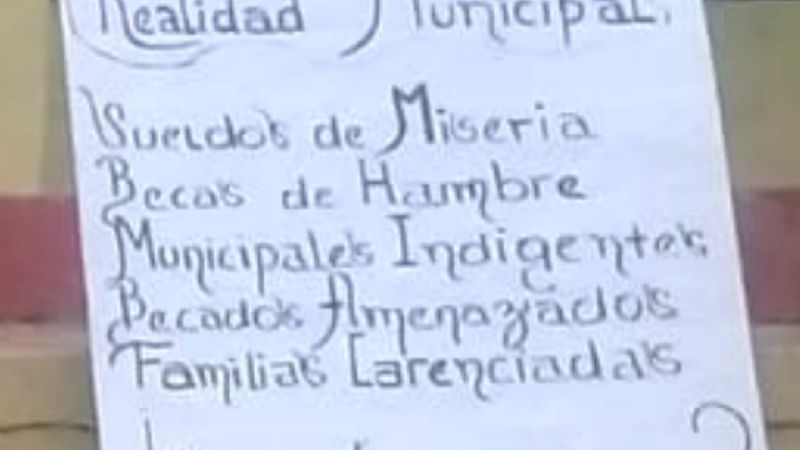 Realidad Municipal.
Sueldos de Miseria
Becas de Hambre
Municipales Indigentes
Becados Amenazados
Familias Carenciadas